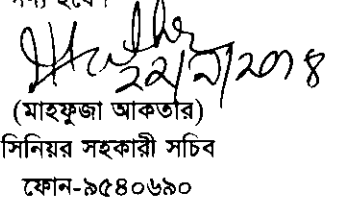 হবে।
২২/৯/২০১৪
(মাহফুজা আকতার)
সিনিয়র সহকারী সচিব
ফোন-৯৫৪০৬৯০